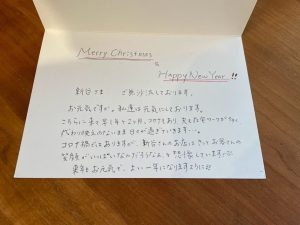 Merry Christmas
&
Happy New Year !!
新谷さま ご無沙汰しております。
お元気ですか。私達は元気にしております。
こちらに来て早1年と2ヶ月。コロナもあり、夫も在宅ワークが多く、
代わり映えのないまま日々が過ぎていきます…。
コロナ禍ではありますが、新谷さんのお店はきっとお客さんの
笑顔がいっぱいなんだろうなぁ、と想像しています
来年もお元気で、よい一年になりますように